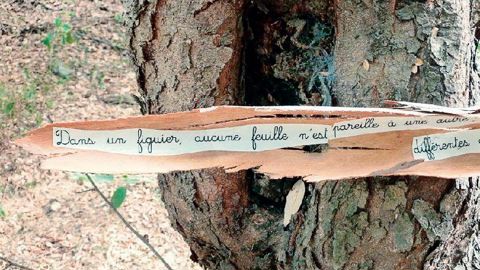 "Dans un figuier, aucune feuille n'est pareille à une autre
différentes